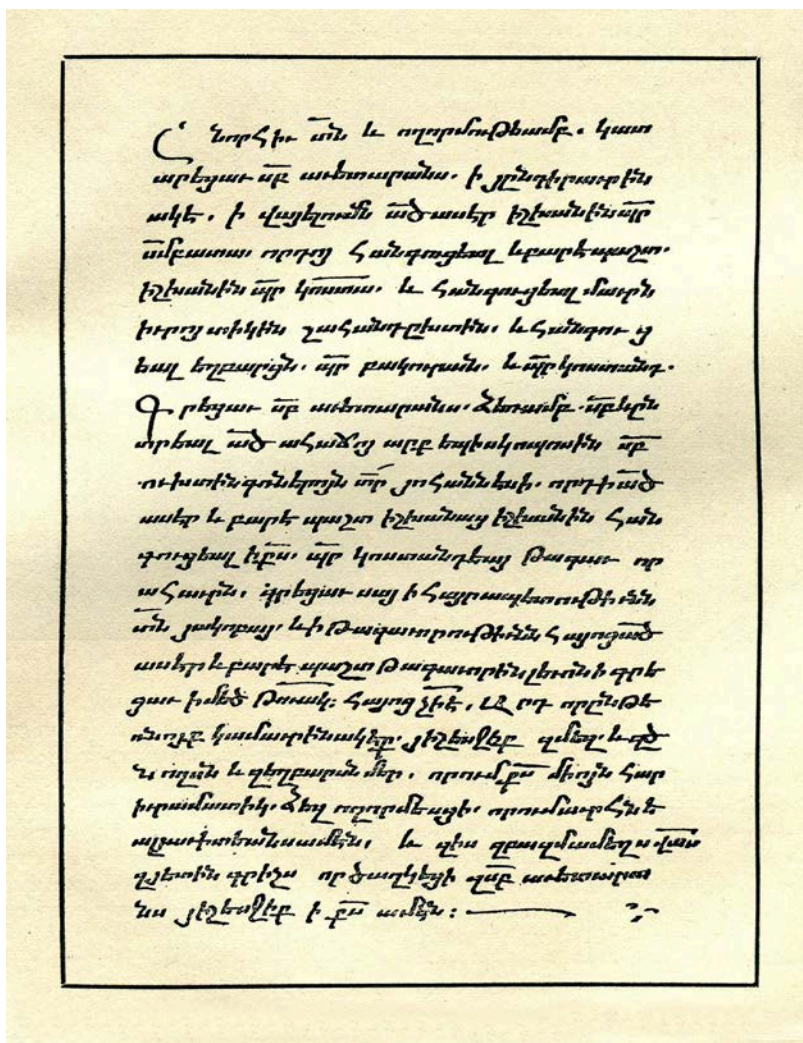 Շնորհիւ տն և ողորմութեամբ. կատ
արեցաւ սբ աւետարանս. ի յընդիրաւրին
ակէ. ի վայելումն ած ասեր իշխանին պր
սմբատա. որդոյ հանգուցեալ և բարէպաշտ.
իշխանին պր կոստա. և հանգուցեալ մաւրն
իւրոյ տիկին շահանդըխտին. և հանգու ց
եալ եղբարցն. պր բակուրան. և պր կոստանդ.
Գրեցաւ սբ աւետարանս. ձեռամբ
տրեալ ած ահաճոյ արք եպիսկոպոսին սբ
ուխտին գռներոյն տր յոհաննեսի. որդի ած
ասեր և բարէ պաշտ իշխանաց իշխանին հան
գուցեալ ի քս. պր կոստանդեայ թագաւ որ
ահաւրն. գրեցաւ սայ ի հայրապետութիւնն
տն յակոբայ. և ի թագաւորութիւնն հայոց ած
ասեր և բարէ պաշտ թագաւորին լեւոնի գրե
ցաւ ի մեծ թուակ: հայոց
կամաւրինակեք. յիշեսջիք զմեզ. և զծ
նաւղսն և զեղբարսն մեր. որում քս միոյն հար
ողորմեսցի.
ամեն. և զիս զբազմամեղս
զյետին գրիչս որ ծաղկեցի զսբ աւետարա
նս յիշեսջիք ի քս ամէն: